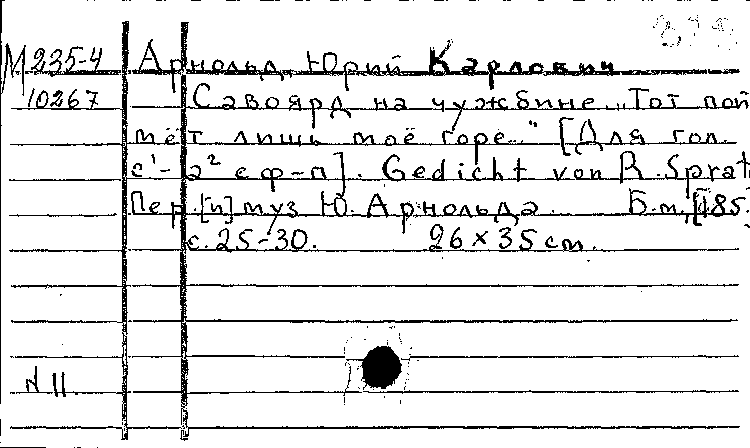 М 235-4 Арнольд, Юрий Карлович
10267 Савоярд на чужбине. „Тот пой
мёт лишь моё горе..." [Для гол.
с¹-а² с ф-п]. Gedicht von R. Sprat
Пер. [и] муз Ю. Арнольда. Б.м., [185.
с. 25-30. 26 × 35 см.
N 11